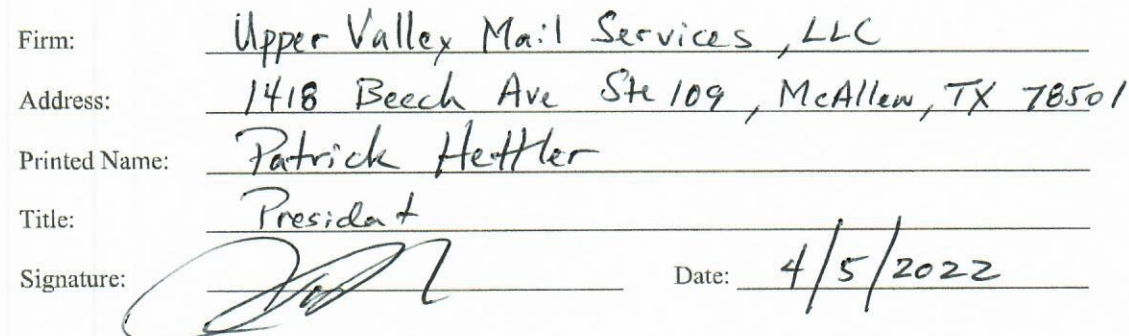 Firm: Upper Valley Mail Services, LLC
Address: 1418 Beech Ave Ste 109, McAllen, TX 78501
Printed Name: Patrick Hettler
Title: President
Signature: Date: 4/5/2022